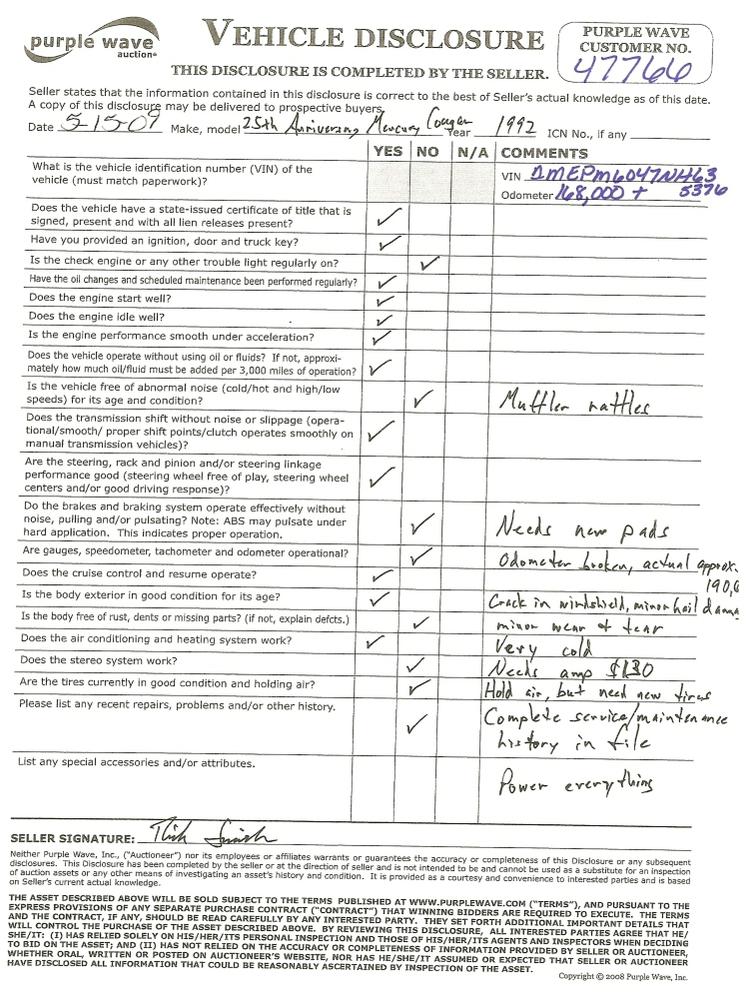 purple wave
auction®
VEHICLE DISCLOSURE
THIS DISCLOSURE IS COMPLETED BY THE SELLER.
PURPLE WAVE
CUSTOMER NO.
47766
Seller states that the information contained in this disclosure is correct to the best of Seller's actual knowledge as of this date.
A copy of this disclosure may be delivered to prospective buyers.
Date 5-15-09 Make, model 25th Anniversary Mercury Cougar Year 1992 ICN No., if any
YES NO N/A COMMENTS
What is the vehicle identification number (VIN) of the
vehicle (must match paperwork)?
VIN
Odometer 168,000 + 5376
Does the vehicle have a state-issued certificate of title that is
signed, present and with all lien releases present? ✓
Have you provided an ignition, door and truck key? ✓
Is the check engine or any other trouble light regularly on? ✓
Have the oil changes and scheduled maintenance been performed regularly? ✓
Does the engine start well? ✓
Does the engine idle well? ✓
Is the engine performance smooth under acceleration? ✓
Does the vehicle operate without using oil or fluids? If not, approxi-
mately how much oil/fluid must be added per 3,000 miles of operation? ✓
Is the vehicle free of abnormal noise (cold/hot and high/low
speeds) for its age and condition? ✓ Muffler rattles
Does the transmission shift without noise or slippage (opera-
tional/smooth/ proper shift points/clutch operates smoothly on
manual transmission vehicles)? ✓
Are the steering, rack and pinion and/or steering linkage
performance good (steering wheel free of play, steering wheel
centers and/or good driving response)? ✓
Do the brakes and braking system operate effectively without
noise, pulling and/or pulsating? Note: ABS may pulsate under
hard application. This indicates proper operation. ✓ Needs new pads
Are gauges, speedometer, tachometer and odometer operational? ✓ Odometer broken, actual approx.
190,0
Does the cruise control and resume operate? ✓
Is the body exterior in good condition for its age? ✓ Crack in windshield, minor hail dama
Is the body free of rust, dents or missing parts? (if not, explain defcts.) ✓ minor wear & tear
Does the air conditioning and heating system work? ✓ Very cold
Does the stereo system work? ✓ Needs amp $130
Are the tires currently in good condition and holding air? ✓ Hold air, but need new tires
Please list any recent repairs, problems and/or other history. ✓ Complete service/maintenance
history in file
List any special accessories and/or attributes.
Power everything
SELLER SIGNATURE:
Neither Purple Wave, Inc., ("Auctioneer") nor its employees or affiliates warrants or guarantees the accuracy or completeness of this Disclosure or any subsequent
disclosures. This Disclosure has been completed by the seller or at the direction of seller and is not intended to and cannot be used as a substitute for an inspection
of auction assets or any other means of investigating an asset's history and condition. It is provided as a courtesy and convenience to interested parties and is based
on Seller's current actual knowledge.
THE ASSET DESCRIBED ABOVE WILL BE SOLD SUBJECT TO THE TERMS PUBLISHED AT WWW.PURPLEWAVE.COM ("TERMS"), AND PURSUANT TO THE
EXPRESS PROVISIONS OF ANY SEPARATE PURCHASE CONTRACT ("CONTRACT") THAT WINNING BIDDERS ARE REQUIRED TO EXECUTE. THE TERMS
AND THE CONTRACT, IF ANY, SHOULD BE READ CAREFULLY BY ANY INTERESTED PARTY. THEY SET FORTH ADDITIONAL IMPORTANT DETAILS THAT
WILL CONTROL THE PURCHASE OF THE ASSET DESCRIBED ABOVE. BY REVIEWING THIS DISCLOSURE, ALL INTERESTED PARTIES AGREE THAT HE/
SHE/IT: (I) HAS RELIED SOLELY ON HIS/HER/ITS PERSONAL INSPECTION AND THOSE OF HIS/HER/ITS AGENTS AND INSPECTORS WHEN DECIDING
TO BID ON THE ASSET; AND (II) HAS NOT RELIED ON THE ACCURACY OR COMPLETENESS OF INFORMATION PROVIDED BY SELLER OR AUCTIONEER,
WHETHER ORAL, WRITTEN OR POSTED ON AUCTIONEER'S WEBSITE, NOR HAS HE/SHE/IT ASSUMED OR EXPECTED THAT SELLER OR AUCTIONEER
HAVE DISCLOSED ALL INFORMATION THAT COULD BE REASONABLY ASCERTAINED BY INSPECTION OF THE ASSET.
Copyright © 2008 Purple Wave, Inc.